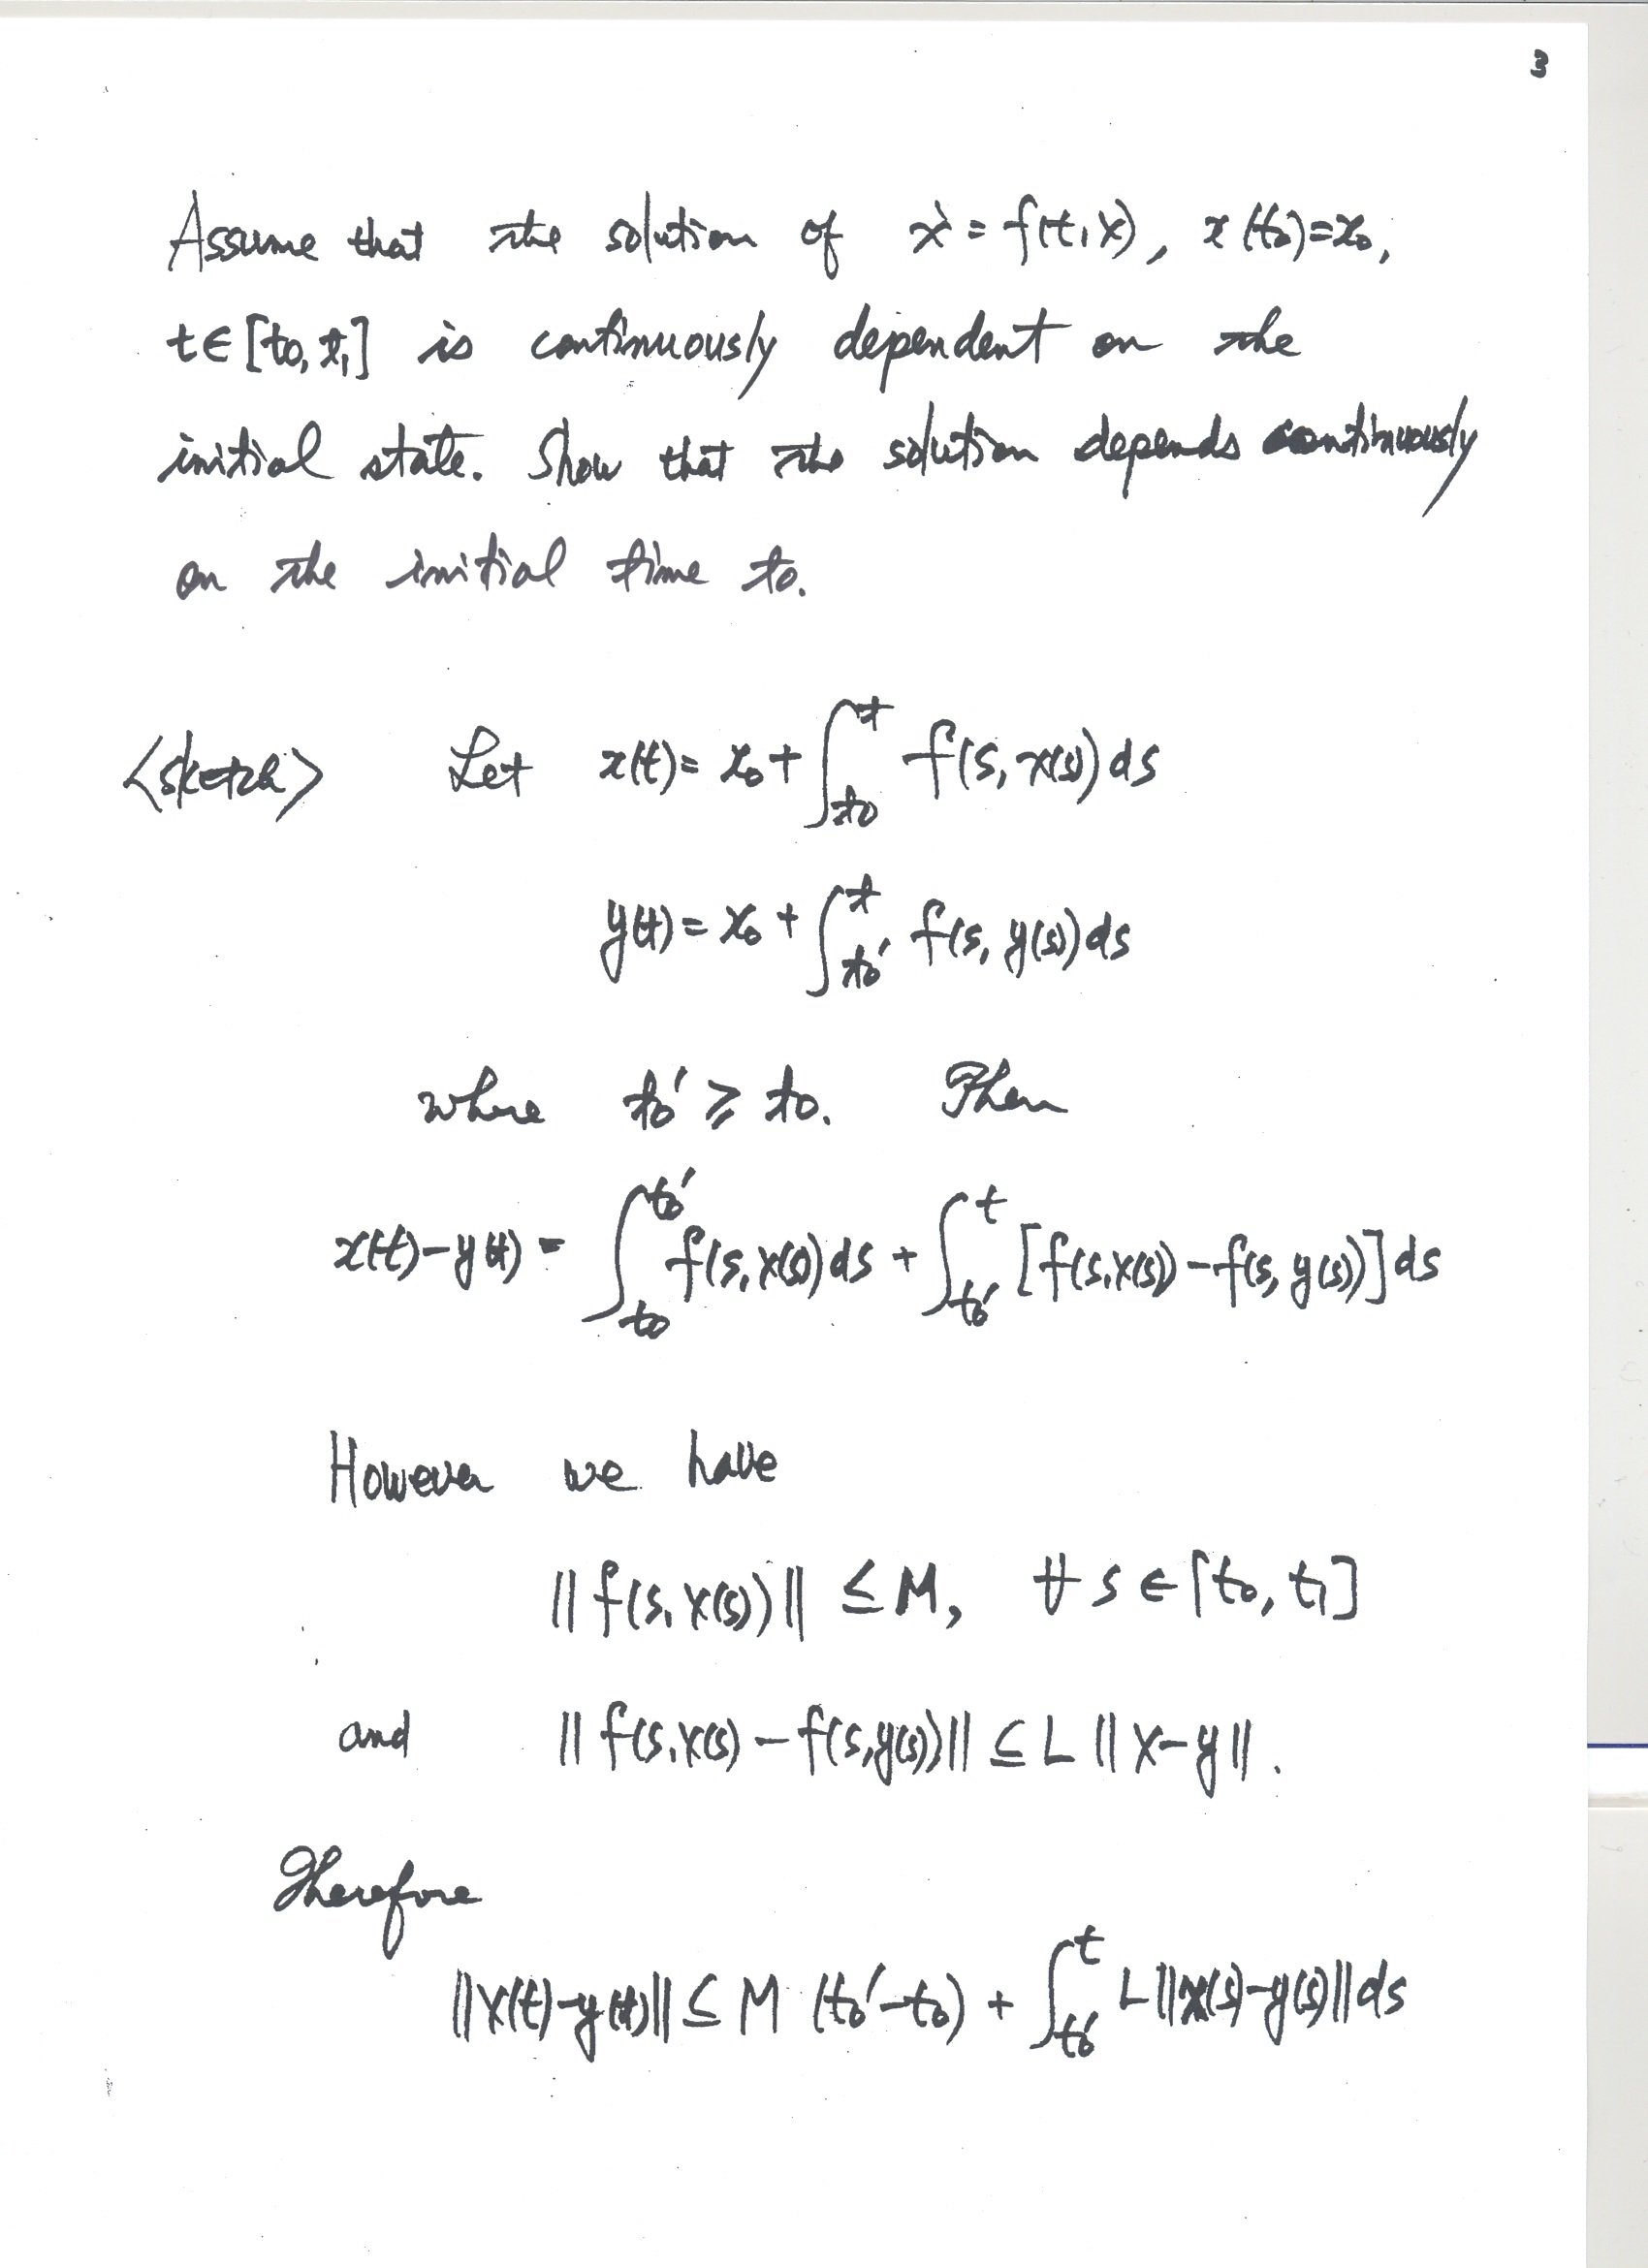 3
Assume that the solution of ẋ = f(t,x), x(t₀)=x₀,
t∈[t₀,t₁] is continuously dependent on the
initial state. Show that the solution depends continuously
on the initial time t₀.
<sketch> Let x(t) = x₀ + ∫_{t₀}^{t} f(s, x(s)) ds
y(t) = x₀ + ∫_{t₀'}^{t} f(s, y(s)) ds
where t₀' ≥ t₀. Then
x(t)-y(t) = ∫_{t₀}^{t₀'} f(s, x(s)) ds + ∫_{t₀'}^{t} [f(s,x(s)) - f(s, y(s))] ds
However we have
‖f(s, x(s))‖ ≤ M, ∀ s ∈ [t₀, t₁]
and ‖f(s,x(s) - f(s,y(s))‖ ≤ L ‖x-y‖.
Therefore
‖x(t)-y(t)‖ ≤ M (t₀'-t₀) + ∫_{t₀'}^{t} L‖x(s)-y(s)‖ ds